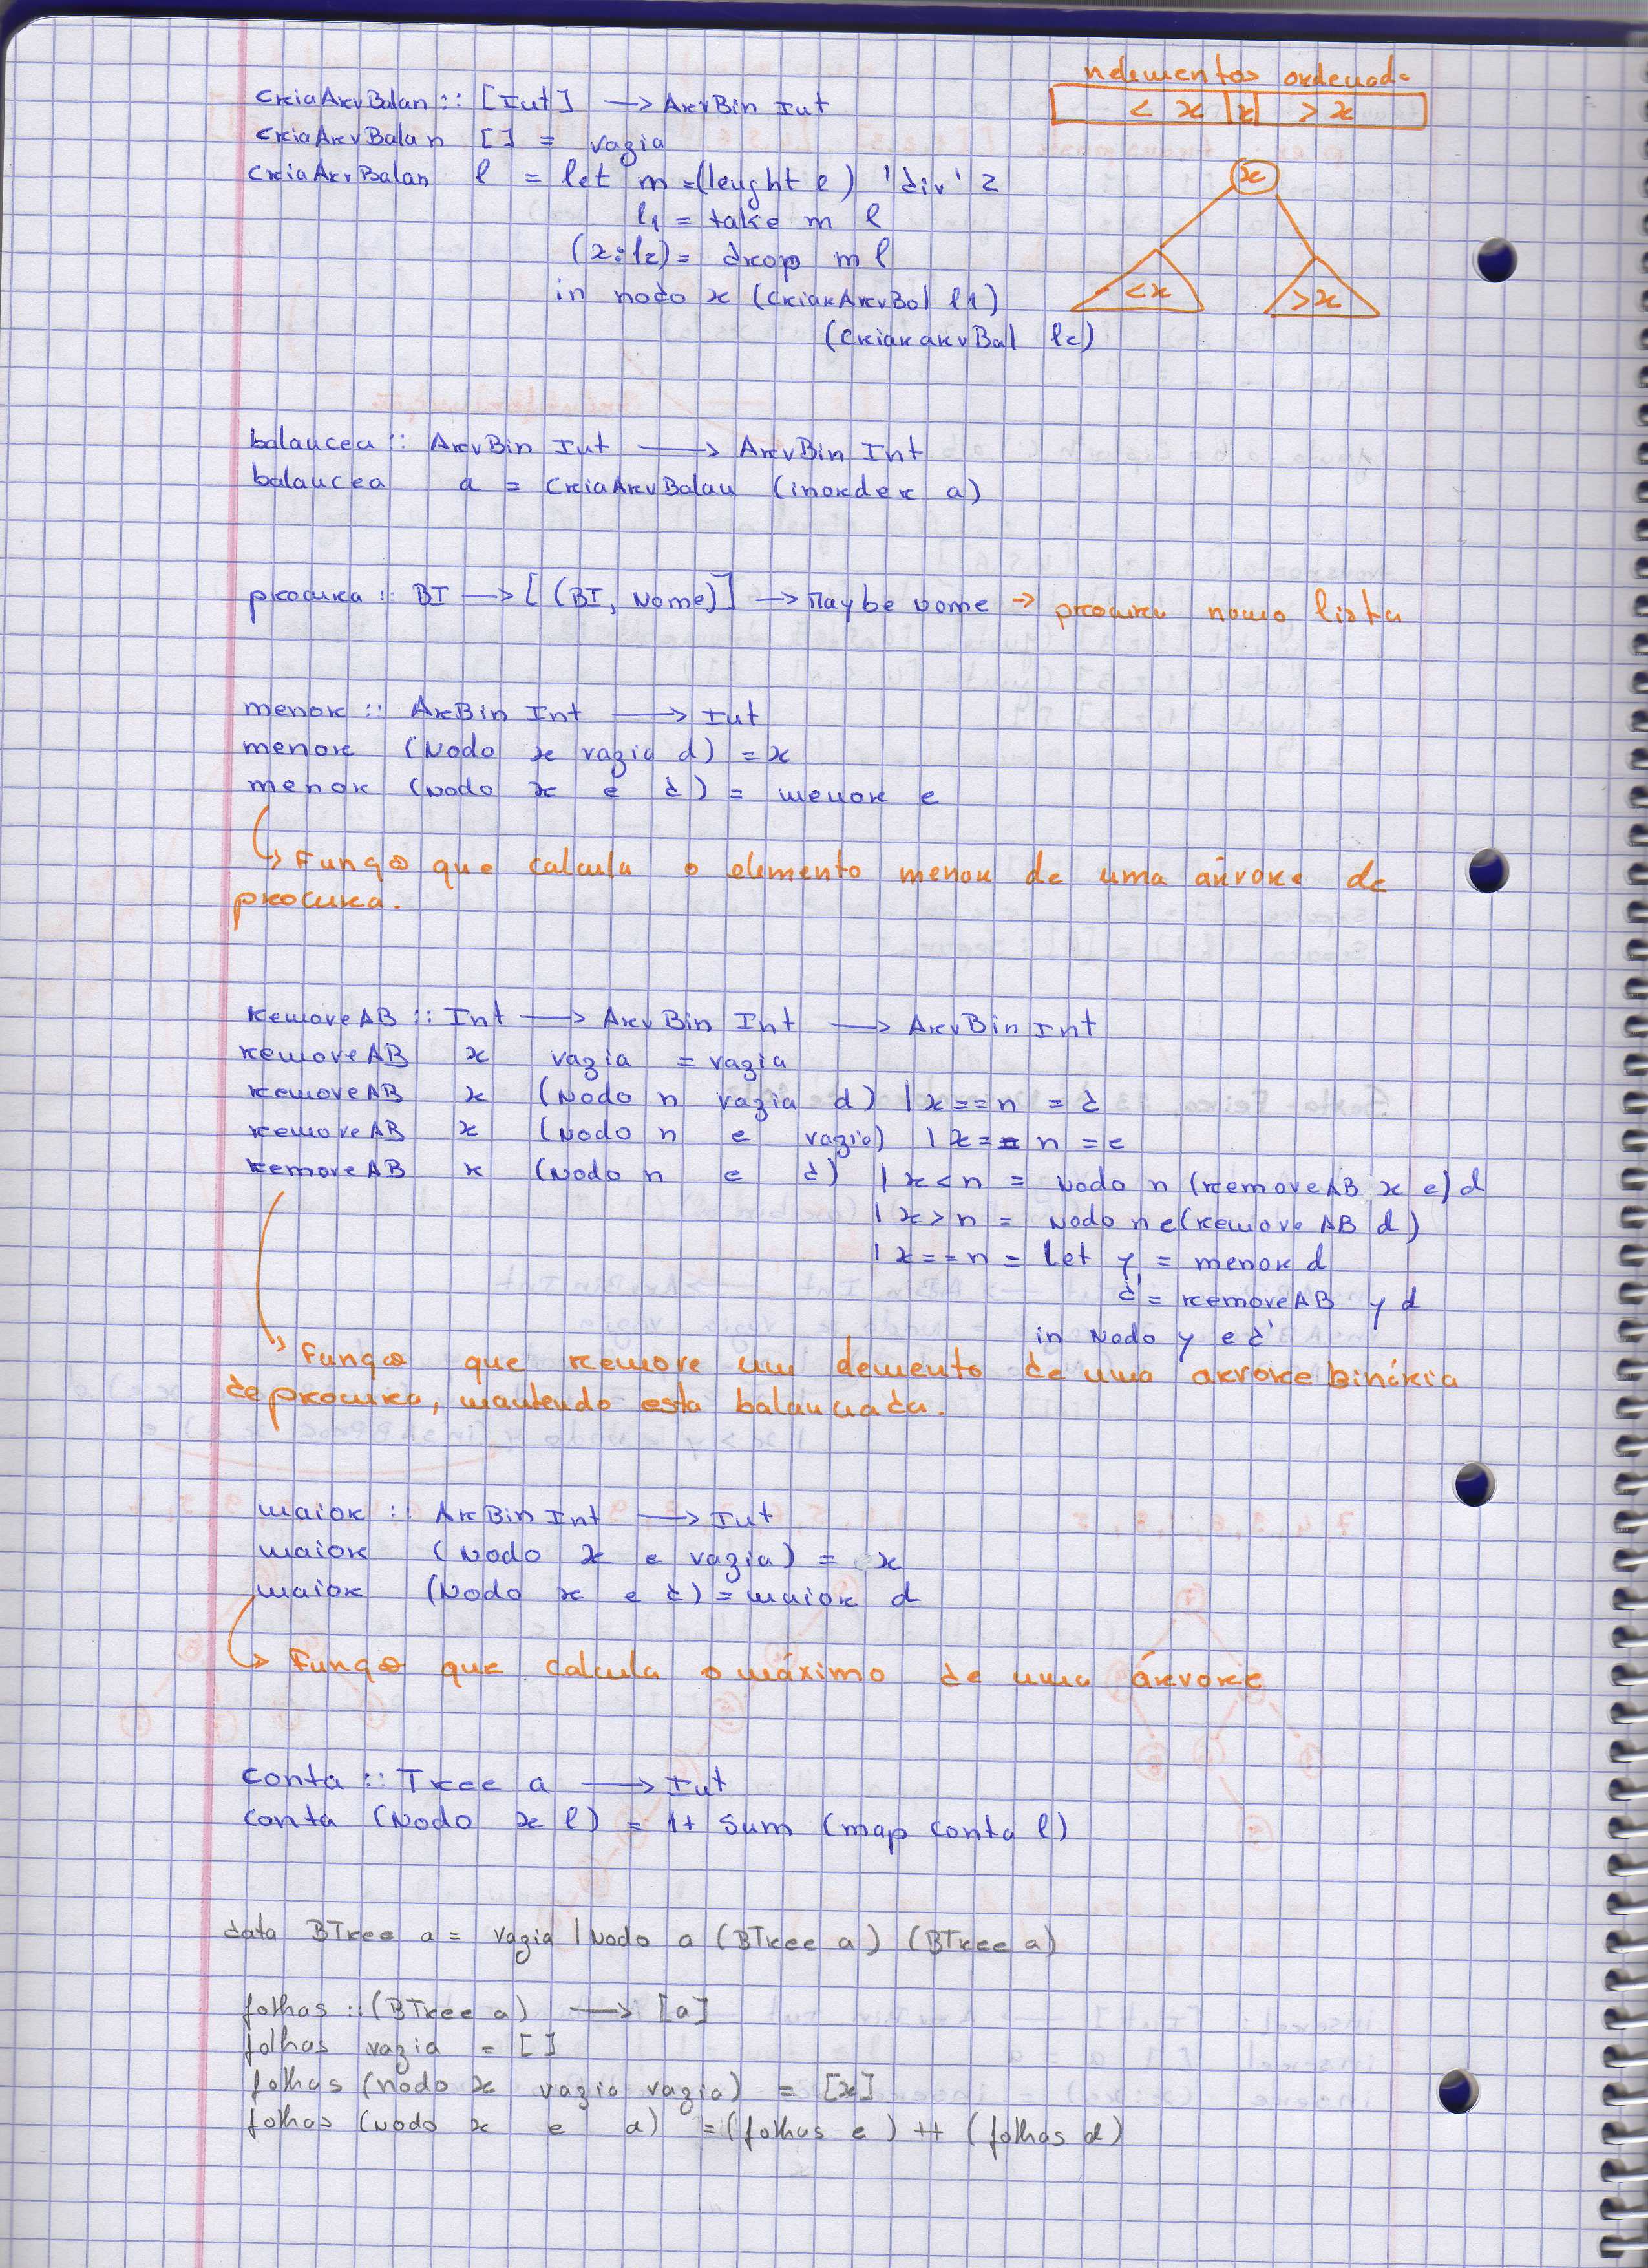 n elementos ordenad.
< x |x| > x
criaArvBalan :: [Int] → ArvBin Int
criaArvBalan [] = vazia
criaArvBalan l = let m = (lenght l) 'div' 2
l1 = take m l
(x:l2) = drop m l
in nodo x (criarArvBal l1)
(criararvBal l2)
x
<x
>x
balancea :: ArvBin Int → ArvBin Int
balancea a = criaArvBalan (inorder a)
procura :: BI → [(BI, Nome)] → Maybe nome → procura numa lista
menor :: ArBin Int → Int
menor (Nodo x vazia d) = x
menor (Nodo x e d) = menor e
↳ Função que calcula o elemento menor de uma árvore de
procura.
removeAB :: Int → ArvBin Int → ArvBin Int
removeAB x vazia = vazia
removeAB x (Nodo n vazia d) | x == n = d
removeAB x (Nodo n e vazia) | x == n = e
removeAB x (Nodo n e d) | x < n = Nodo n (removeAB x e) d
| x > n = Nodo n e (remove AB d)
| x == n = let y = menor d
d' = removeAB y d
in Nodo y e d'
↳ Função que remove um elemento de uma arvore binária
de procura, mantendo esta balanceada.
maior :: ArBin Int → Int
maior (Nodo x e vazia) = x
maior (Nodo x e d) = maior d
↳ Função que calcula o máximo de uma árvore
conta :: Tree a → Int
conta (Nodo x l) = 1+ sum (map conta l)
data BTree a = vazia | Nodo a (BTree a) (BTree a)
folhas :: (BTree a) → [a]
folhas vazia = []
folhas (nodo x vazia vazia) = [x]
folhas (nodo x e d) = (folhas e) ++ (folhas d)